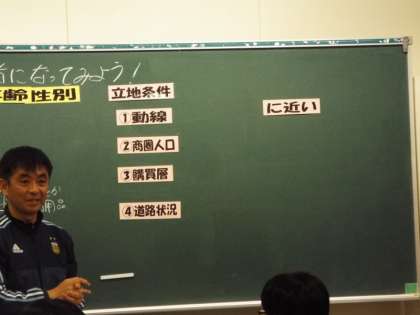 になってみよう!
齢性別
立地条件
①動線
②商圏人口
③購買層
④道路状況
に近い
adidas